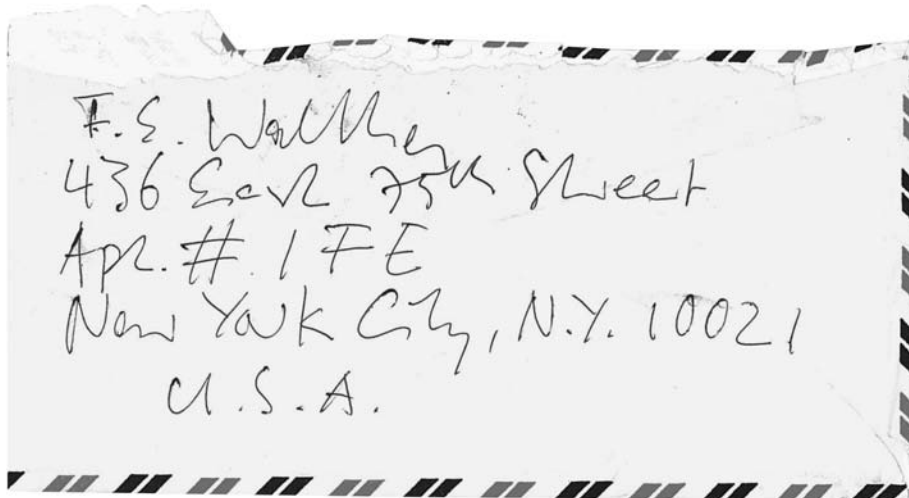 F.E. Walther
436 East 75th Street
Apt. # 1 F E
New York City, N.Y. 10021
U.S.A.